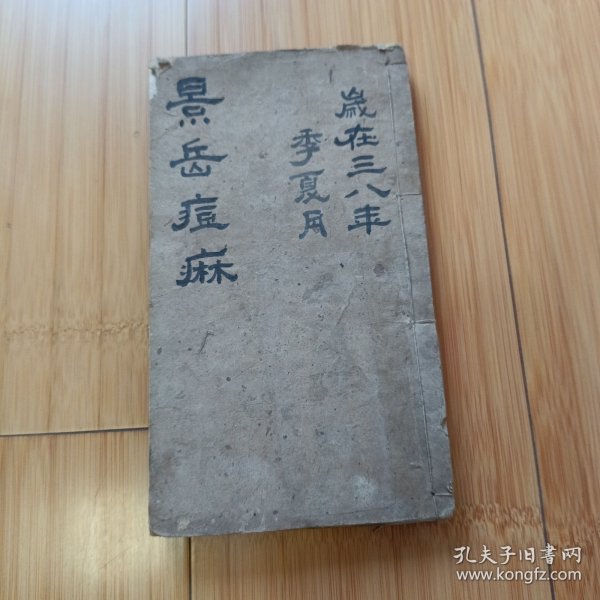 歲在三八年
季夏月
景岳痘麻
孔夫子旧書网
www.kongfz.com